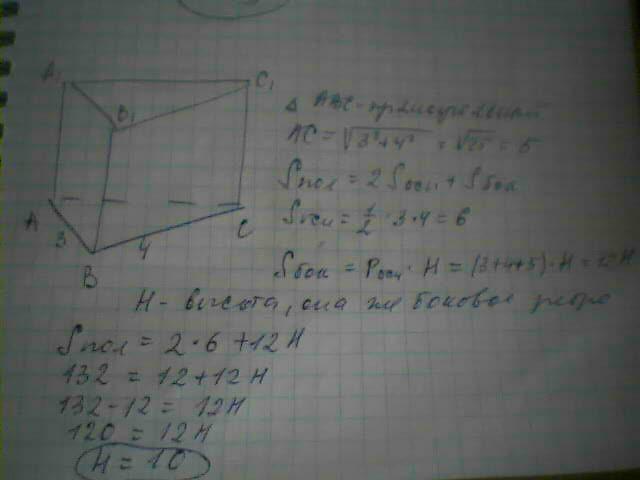 A₁
C₁
B₁
A
B
C
3
4
Δ ABC - прямоугольный
AC = √3²+4² = √25 = 5
Sпол = 2 Sосн + Sбок
Sосн = 1/2 · 3 · 4 = 6
Sбок = Pосн · H = (3+4+5) · H = 12H
H - высота, она же боковое ребро
Sпол = 2·6 + 12H
132 = 12 + 12H
132 - 12 = 12H
120 = 12H
H = 10